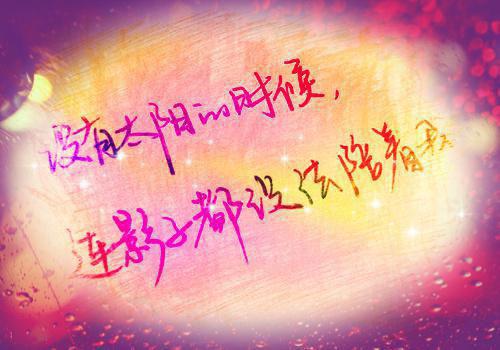 没有太阳的时候,
连影子都没法陪着我